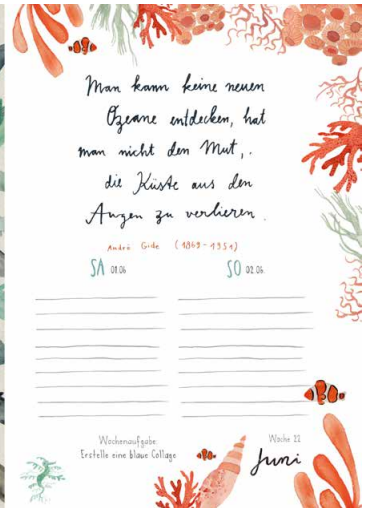 Man kann keine neuen
Ozeane entdecken, hat
man nicht den Mut,
die Küste aus den
Augen zu verlieren.
André Gide (1869-1951)
SA 01.06 SO 02.06.
Wochenaufgabe:
Erstelle eine blaue Collage
Woche 22
Juni